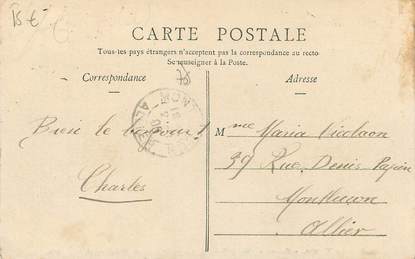 15 €
CARTE POSTALE
Tous les pays étrangers n'acceptent pas la correspondance au recto
Se renseigner à la Poste.
Correspondance
Adresse
Bien le bonjour !
Charles
Mme Maria
39 Rue Denis Papin
Montluçon
Allier